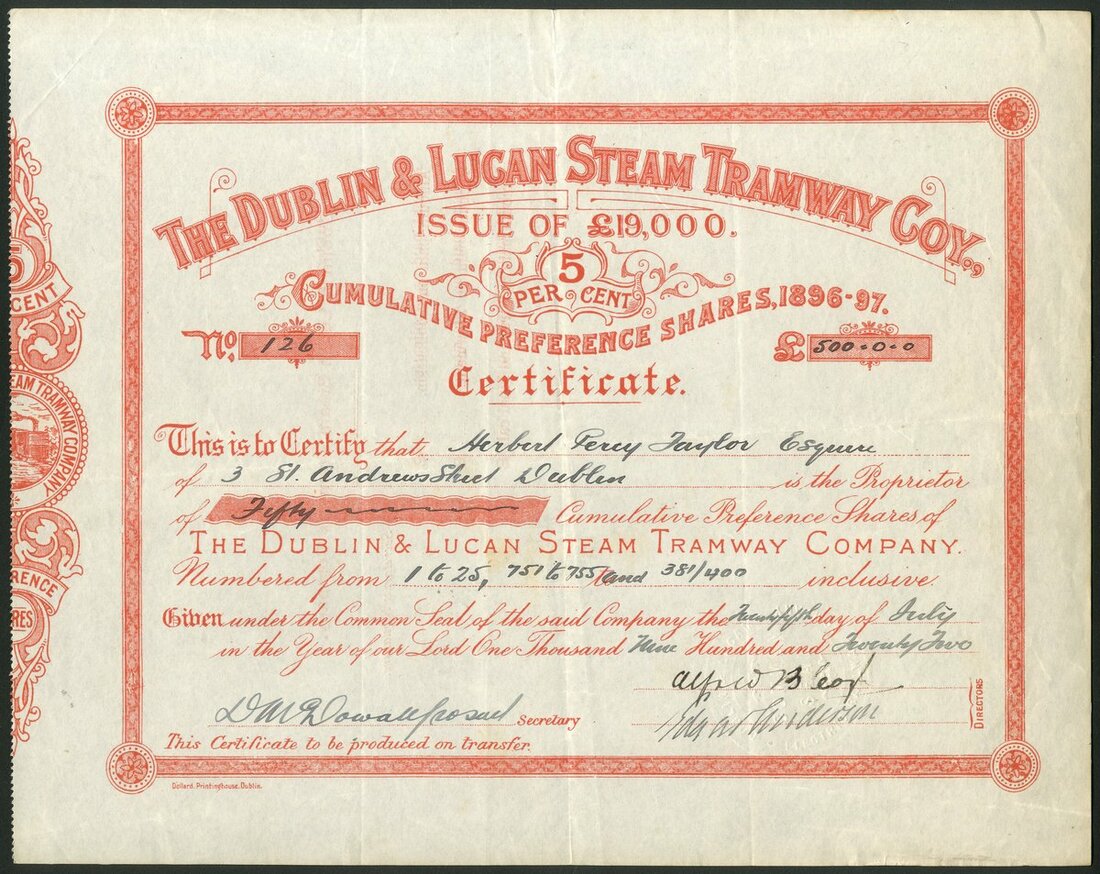 THE DUBLIN & LUCAN STEAM TRAMWAY COY.,
ISSUE OF £19,000.
5
PER CENT
CUMULATIVE PREFERENCE SHARES, 1896-97.
No. 126
£ 500.0.0
Certificate.
This is to Certify that Herbert Percy Taylor Esquire
of 3 St. Andrews Street Dublin is the Proprietor
of Fifty Cumulative Preference Shares of
THE DUBLIN & LUCAN STEAM TRAMWAY COMPANY.
Numbered from 1 to 25, 751 to 755 and 381/400 inclusive.
Given under the Common Seal of the said Company the Twentyfifth day of July
in the Year of our Lord One Thousand Nine Hundred and Twenty Two
Alfred B
Edgar Anderson
DIRECTORS
Secretary
This Certificate to be produced on transfer.
Dollard, Printinghouse, Dublin.
5
CENT
EAM TRAMWAY COMPANY
RENCE
RES